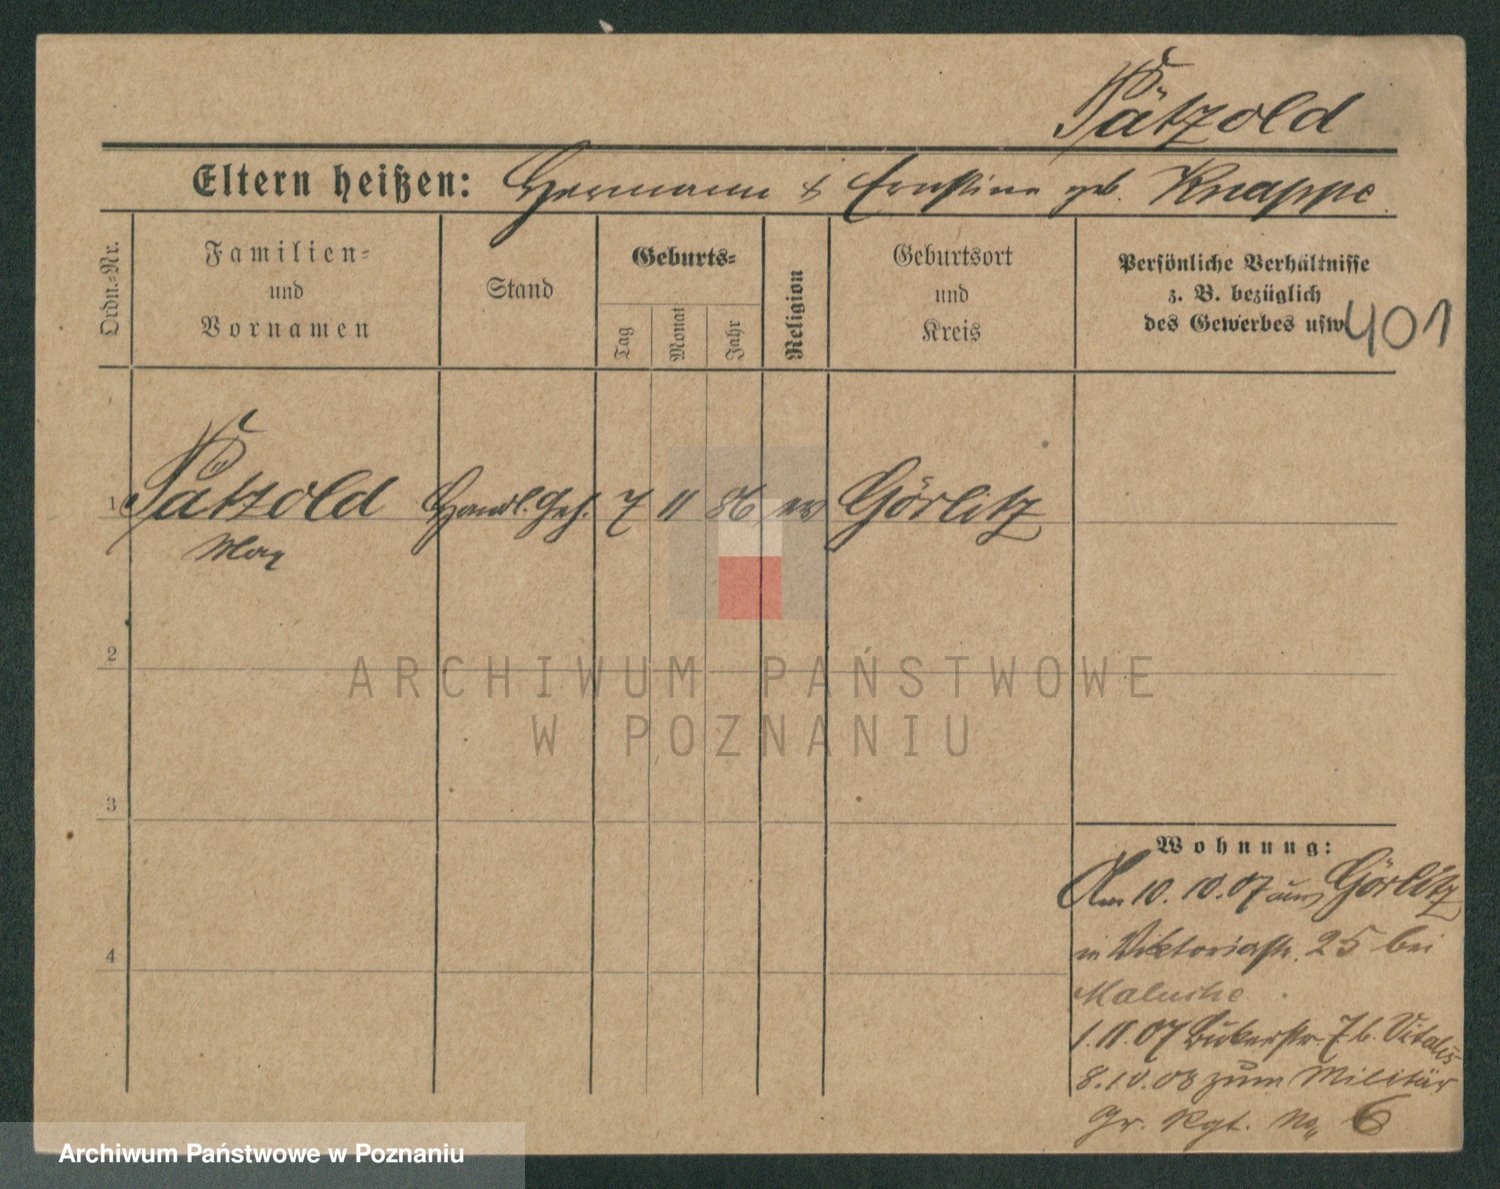 Pätzold
Eltern heißen: Hermann & Ernstine geb. Knappe.
Ordn.-Nr.
Familien-
und
Vornamen
Stand
Geburts-
Tag
Monat
Jahr
Religion
Geburtsort
und
Kreis
Persönliche Verhältnisse
z. B. bezüglich
des Gewerbes usw.
401
1 Pätzold Handl. Geh. 7 11 86 ev Görlitz
Max
2
3
4
ARCHIWUM PAŃSTWOWE
W POZNANIU
Wohnung:
Am 10. 10. 07 aus Görlitz
in Viktoriastr. 25 bei
1. 11. 07 Bukerstr. 7 b. Vitalis
8. 10. 08 zum Militär
Gr. Rgt. No 6
Archiwum Państwowe w Poznaniu